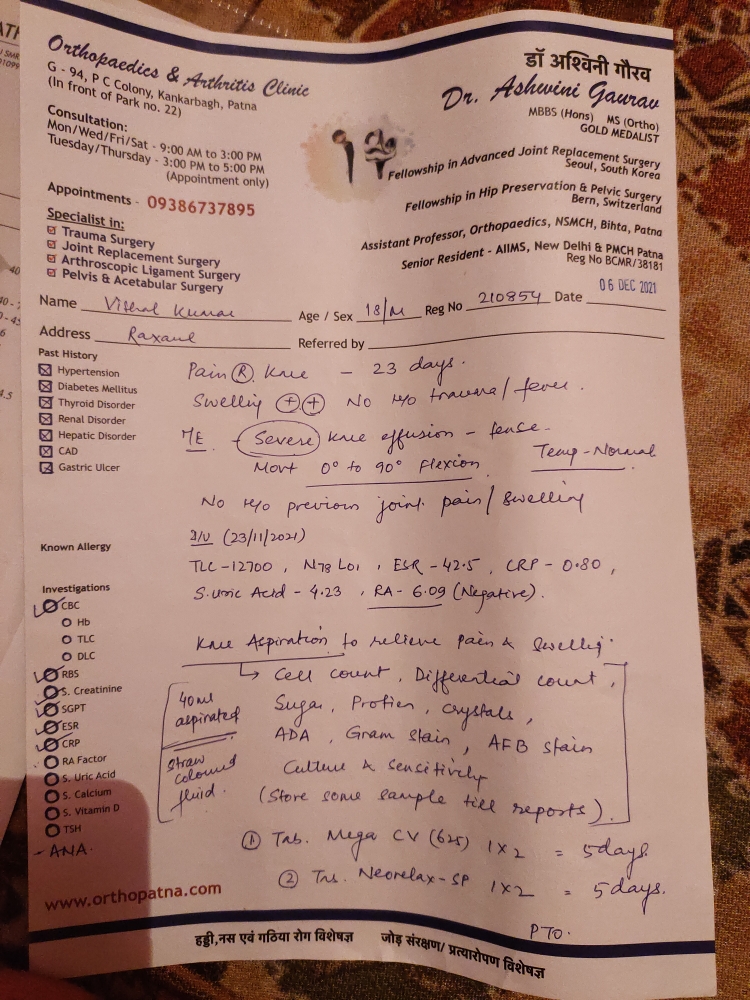 Orthopaedics & Arthritis Clinic
G - 94, P C Colony, Kankarbagh, Patna
(In front of Park no. 22)
Consultation:
Mon/Wed/Fri/Sat - 9:00 AM to 3:00 PM
Tuesday/Thursday - 3:00 PM to 5:00 PM
(Appointment only)
Appointments - 09386737895
Specialist in:
Trauma Surgery
Joint Replacement Surgery
Arthroscopic Ligament Surgery
Pelvis & Acetabular Surgery
डॉ अश्विनी गौरव
Dr. Ashwini Gaurav
MBBS (Hons) MS (Ortho)
GOLD MEDALIST
Fellowship in Advanced Joint Replacement Surgery
Seoul, South Korea
Fellowship in Hip Preservation & Pelvic Surgery
Bern, Switzerland
Assistant Professor, Orthopaedics, NSMCH, Bihta, Patna
Senior Resident - AIIMS, New Delhi & PMCH Patna
Reg No BCMR/38181
Name Vishal Kumar Age / Sex 18/M Reg No 210854 Date 06 DEC 2021
Address Raxaul Referred by
Past History
Hypertension
Diabetes Mellitus
Thyroid Disorder
Renal Disorder
Hepatic Disorder
CAD
Gastric Ulcer
Known Allergy
Investigations
CBC
Hb
TLC
DLC
RBS
S. Creatinine
SGPT
ESR
CRP
RA Factor
S. Uric Acid
S. Calcium
S. Vitamin D
TSH
- ANA.
Pain (R) Knee - 23 days.
Swelling (+)(+) No H/o trauma / fever.
(Severe) Knee effusion - tense.
Temp - Normal
Movt 0° to 90° Flexion
No H/o previous joint pain / swelling
(23/11/2021)
TLC - 12700, N78 L01, ESR - 42.5, CRP - 0.80,
S. uric Acid - 4.23, RA - 6.09 (Negative).
Knee Aspiration to relieve pain & swelling.
↳ Cell count, Differential count,
Sugar, Protien, crystals,
ADA, Gram stain, AFB stain
Culture & sensitivity
(Store some sample till reports).
40ml
aspirated
straw
coloured
fluid.
① Tab. Mega CV (625) 1 x 2 = 5 days.
② Tab. Neorelax-SP 1 x 2 = 5 days.
PTO.
www.orthopatna.com
हड्डी,नस एवं गठिया रोग विशेषज्ञ जोड़ संरक्षण/ प्रत्यारोपण विशेषज्ञ